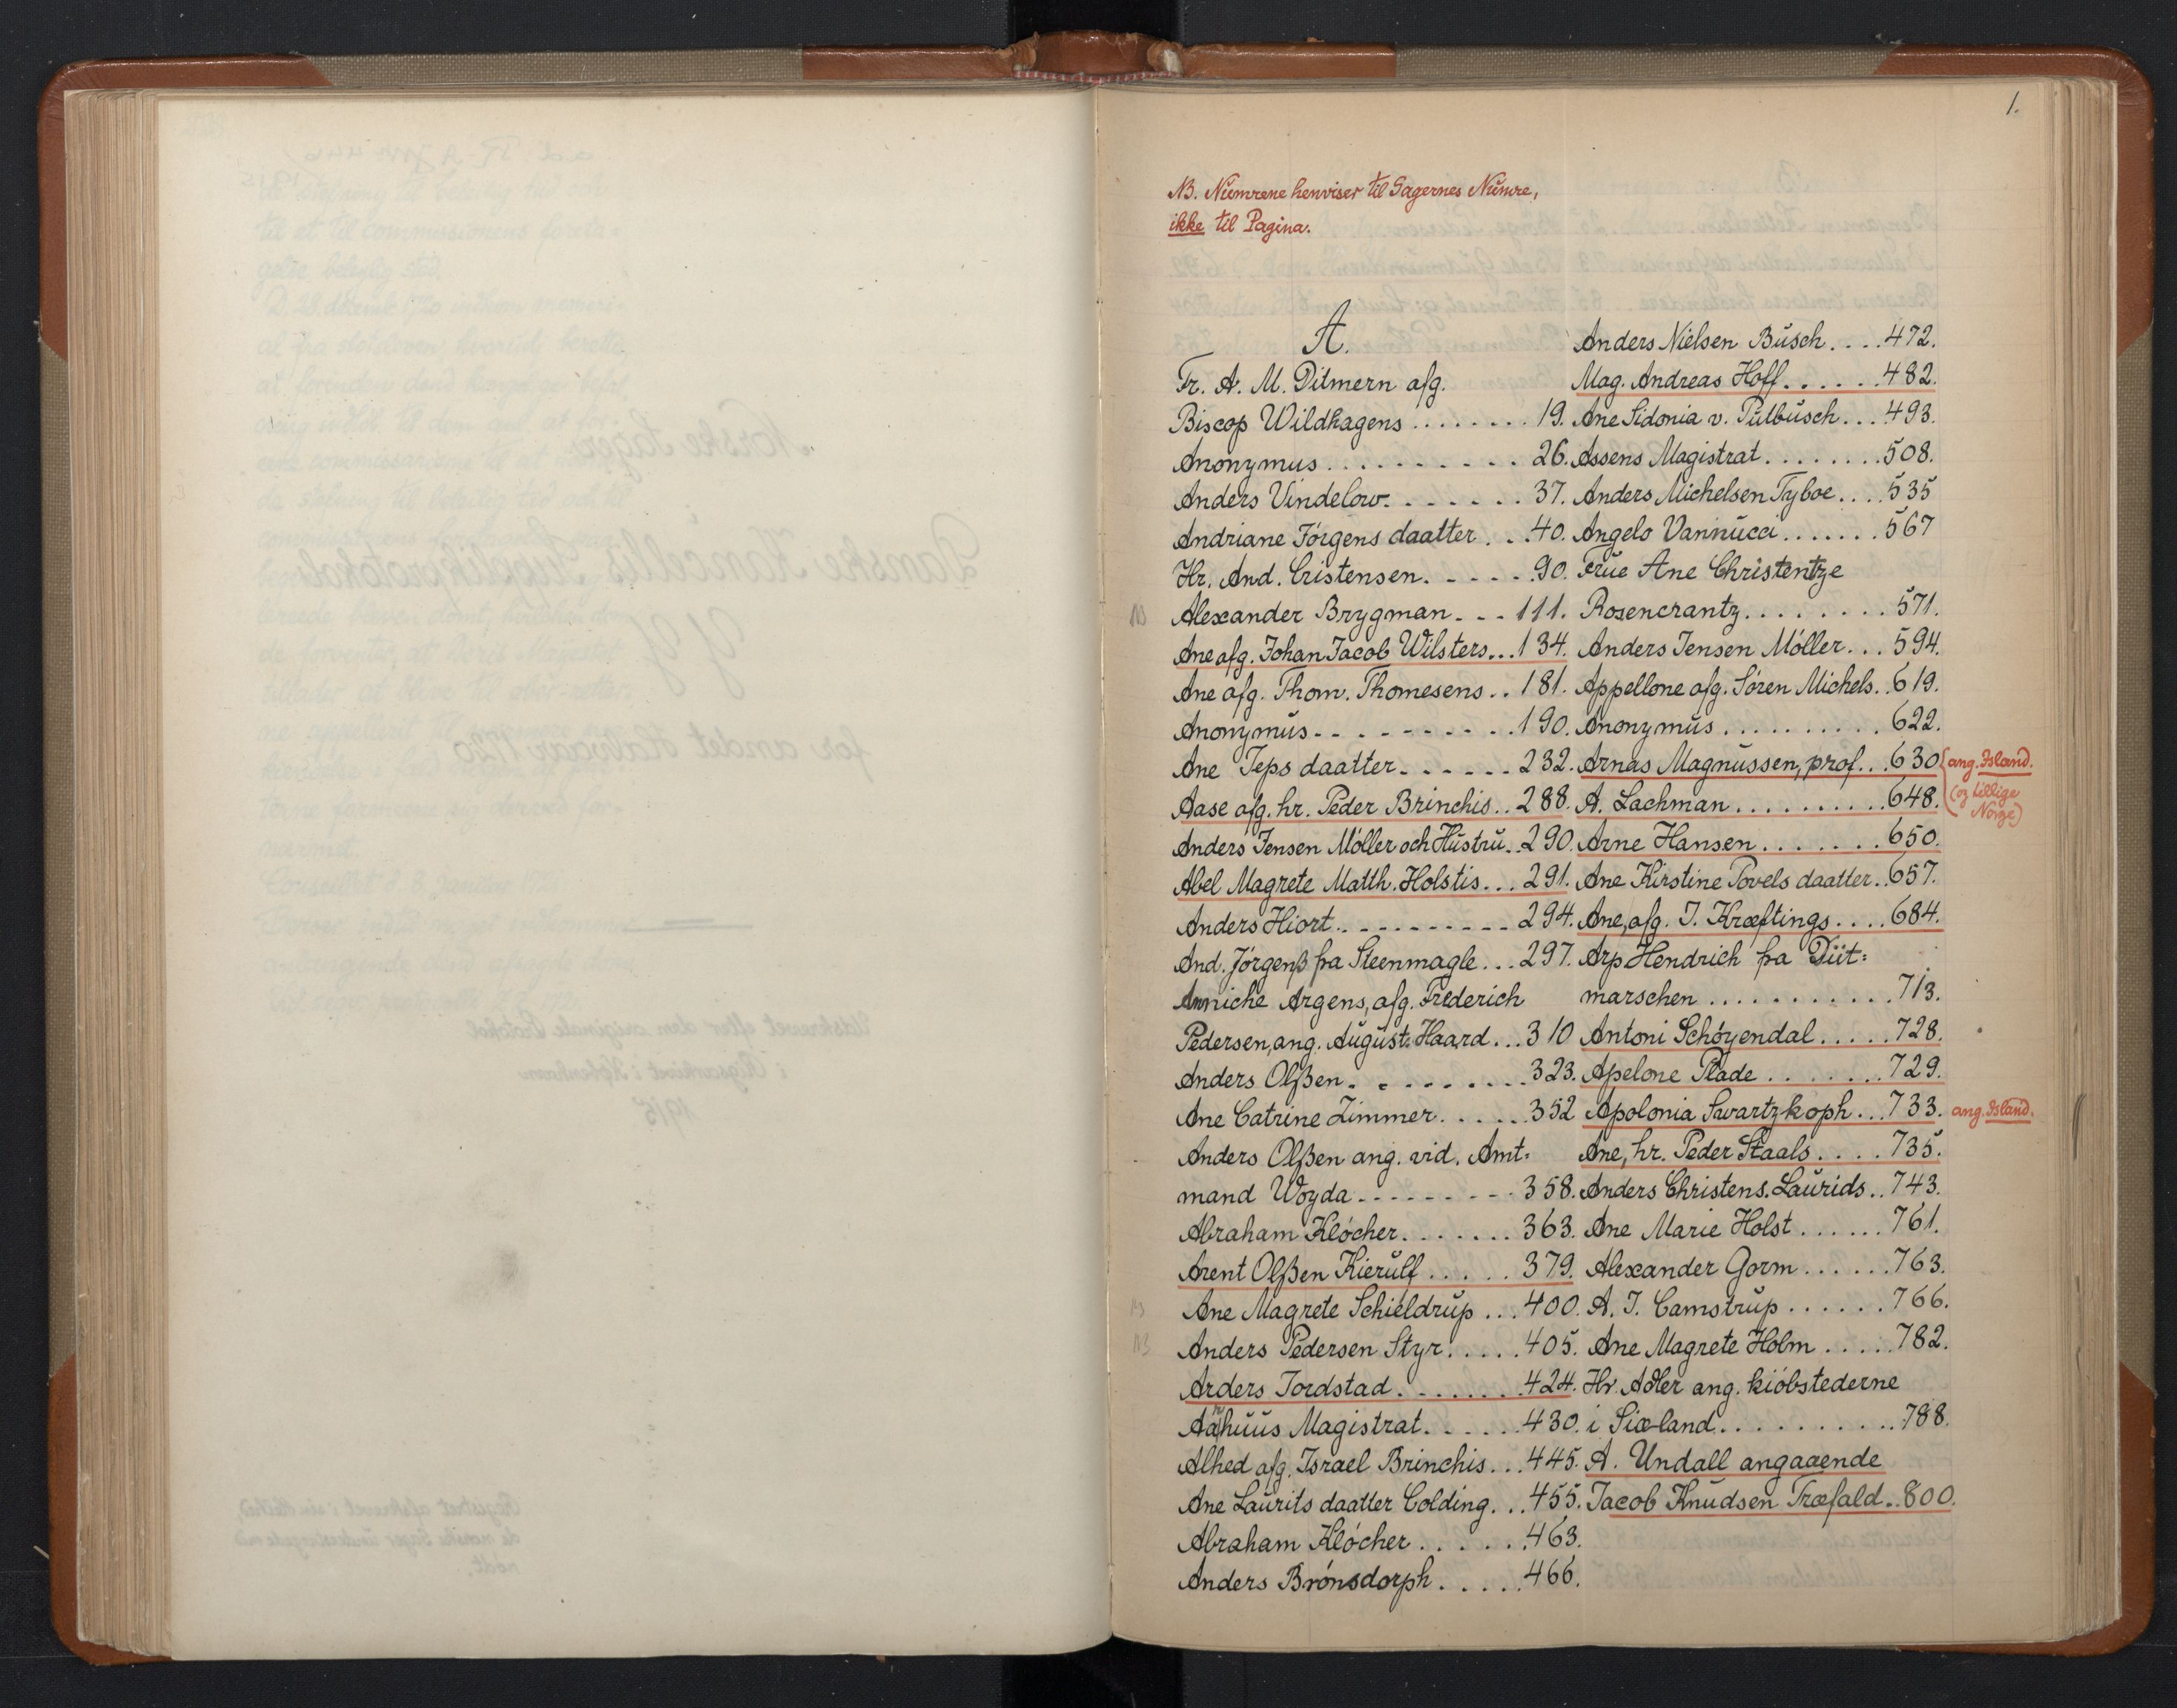 1.
NB. Numrene henviser til Sagernes Numre,
ikke til Pagina.
A.
Fr. A. M. Ditmern afg.
Biscop Wildhagens ........ 19.
Anonymus .......... 26.
Anders Vindelow ....... 37.
Andriane Jörgens daatter ... 40.
Hr. And. Cristensen ..... 90.
NB Alexander Brygman ... 111.
Ane afg. Johan Jacob Wilsters... 134.
Ane afg. Thom. Thomesens .. 181.
Anonymus ......... 190.
Ane Jeps daatter ...... 232.
Aase afg. hr. Peder Brinchis .. 288.
Anders Jensen Möller och Hustru .. 290.
Abel Magrete Matth. Holstis ... 291.
Anders Hiort .......... 294.
And. Jörgenß fra Steenmagle ... 297.
Anniche Argens, afg. Frederich
Pedersen, ang. August. Haard ... 310
Anders Olßen ......... 323.
Ane Catrine Zimmer ...... 352
Anders Olßen ang. vid. Amt-
mand Woyda ......... 358.
Abraham Klöcher ....... 363.
Arent Olßen Kierulf ..... 379.
NB Ane Magrete Schieldrup ... 400.
NB Anders Pedersen Styr ..... 405.
Arders Tordstad ........ 424.
Aarhuus Magistrat ...... 430.
Alhed afg. Israel Brinchis ... 445.
Ane Laurits daatter Colding ... 455.
Abraham Klöcher ...... 463.
Anders Brönsdorph ..... 466.
Anders Nielsen Busch .... 472.
Mag. Andreas Hoff ...... 482.
Ane Sidonia v. Putbusch .... 493.
Assens Magistrat ........ 508.
Anders Michelsen Tyboe .... 535
Angelo Vannucci ....... 567
Frue Ane Christentze
Rosencrantz ........ 571.
Anders Jensen Möller ... 594.
Appellone afg. Sören Michels .. 619.
Anonymus .......... 622.
Arnas Magnussen, prof. .. 630 ang. Island.
A. Lachman .......... 648. (og tillige
Norge)
Arne Hansen ....... 650.
Ane Kirstine Povels daatter .. 657.
Ane, afg. J. Kræftings .... 684.
Arp Hendrich fra Diit-
marschen ........... 713.
Antoni Schöyendal ..... 728.
Apelone Plade ....... 729.
Apolonia Swartzkoph ... 733. ang. Island.
Ane, hr. Peder Staals .... 735.
Anders Christens. Laurids .. 743.
Ane Marie Holst ...... 761.
Alexander Gorm ...... 763.
A. J. Camstrup ...... 766.
Ane Magrete Holm ..... 782.
Hr. Adler ang. kiöbstederne
i Siæland .......... 788.
A. Undall angaaende
Jacob Knudsen Træfald .. 800.